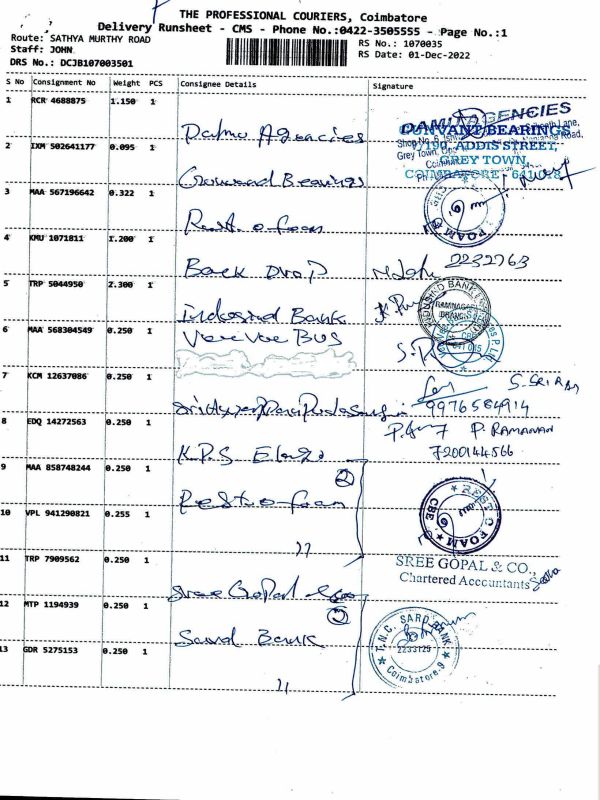 THE PROFESSIONAL COURIERS, Coimbatore
Delivery Runsheet - CMS - Phone No.:0422-3505555 - Page No.:1
Route: SATHYA MURTHY ROAD
RS No.: 1070035
Staff: JOHN
RS Date: 01-Dec-2022
DRS No.: DCJB107003501
S No Consignment No Weight PCS Consignee Details Signature
1 RCR 4688875 1.150 1
Agencies
AGENCIES
2 IXM 502641177 0.095 1
GUNVANT BEARINGS
190, ADDIS STREET,
GREY TOWN,
COIMBATORE - 641 018
Bearings
3 MAA 567196642 0.322 1
FOAM
4 KMU 1071811 1.200 1
Back Drop
2232763
5 TRP 5044950 2.300 1
Indusind Bank
INDUSIND BANK
RAMNAGAR
BRANCH
6 MAA 568304549 0.250 1
Vee Vee BUS
7 KCM 12637086 0.250 1
S. SRI RAM
9976584914
8 EDQ 14272563 0.250 1
P. RAMANAN
7200144566
K.P.S
9 MAA 858748244 0.250 1
2
Rest-o-foam
RESTO FOAM
CBE
10 VPL 941290821 0.255 1
11 TRP 7909562 0.250 1
SREE GOPAL & CO.,
Chartered Accountants
Sree Gopal
12 MTP 1194939 0.250 1
T.N.C. SARD BANK
2233125
Coimbatore-9
Sard Bank
13 GDR 5275153 0.250 1